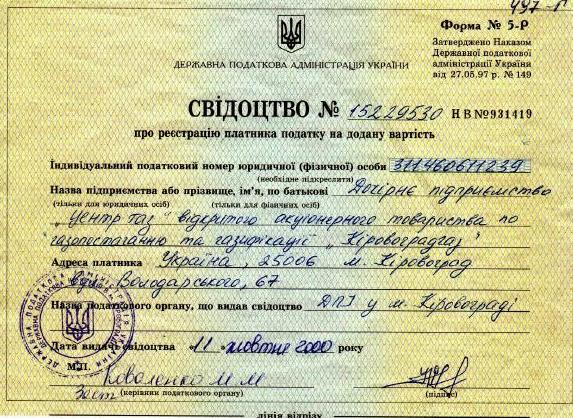 497-Г
Форма № 5-Р
Затверджено Наказом
Державної податкової
адміністрації України
від 27.05.97 р. № 149
ДЕРЖАВНА ПОДАТКОВА АДМІНІСТРАЦІЯ УКРАЇНИ
СВІДОЦТВО № 15229530 НВ №931419
про реєстрацію платника податку на додану вартість
Індивідуальний податковий номер юридичної (фізичної) особи 311460611239
(необхідне підкреслити)
Назва підприємства або прізвище, ім'я, по батькові Дочірнє підприємство
(тільки для юридичних осіб) (тільки для фізичних осіб)
"Центр газ" відкритого акціонерного товариства по
газопостачанню та газифікації "Кіровоградгаз"
Адреса платника Україна, 25006 м. Кіровоград
Володарського, 67
Назва податкового органу, що видав свідоцтво ДПІ у м. Кіровограді
Дата видачі свідоцтва "11" жовтня 2000 року
М.П. Коваленко М М
Заст (керівник податкового органу) (підпис)
лінія відрізу